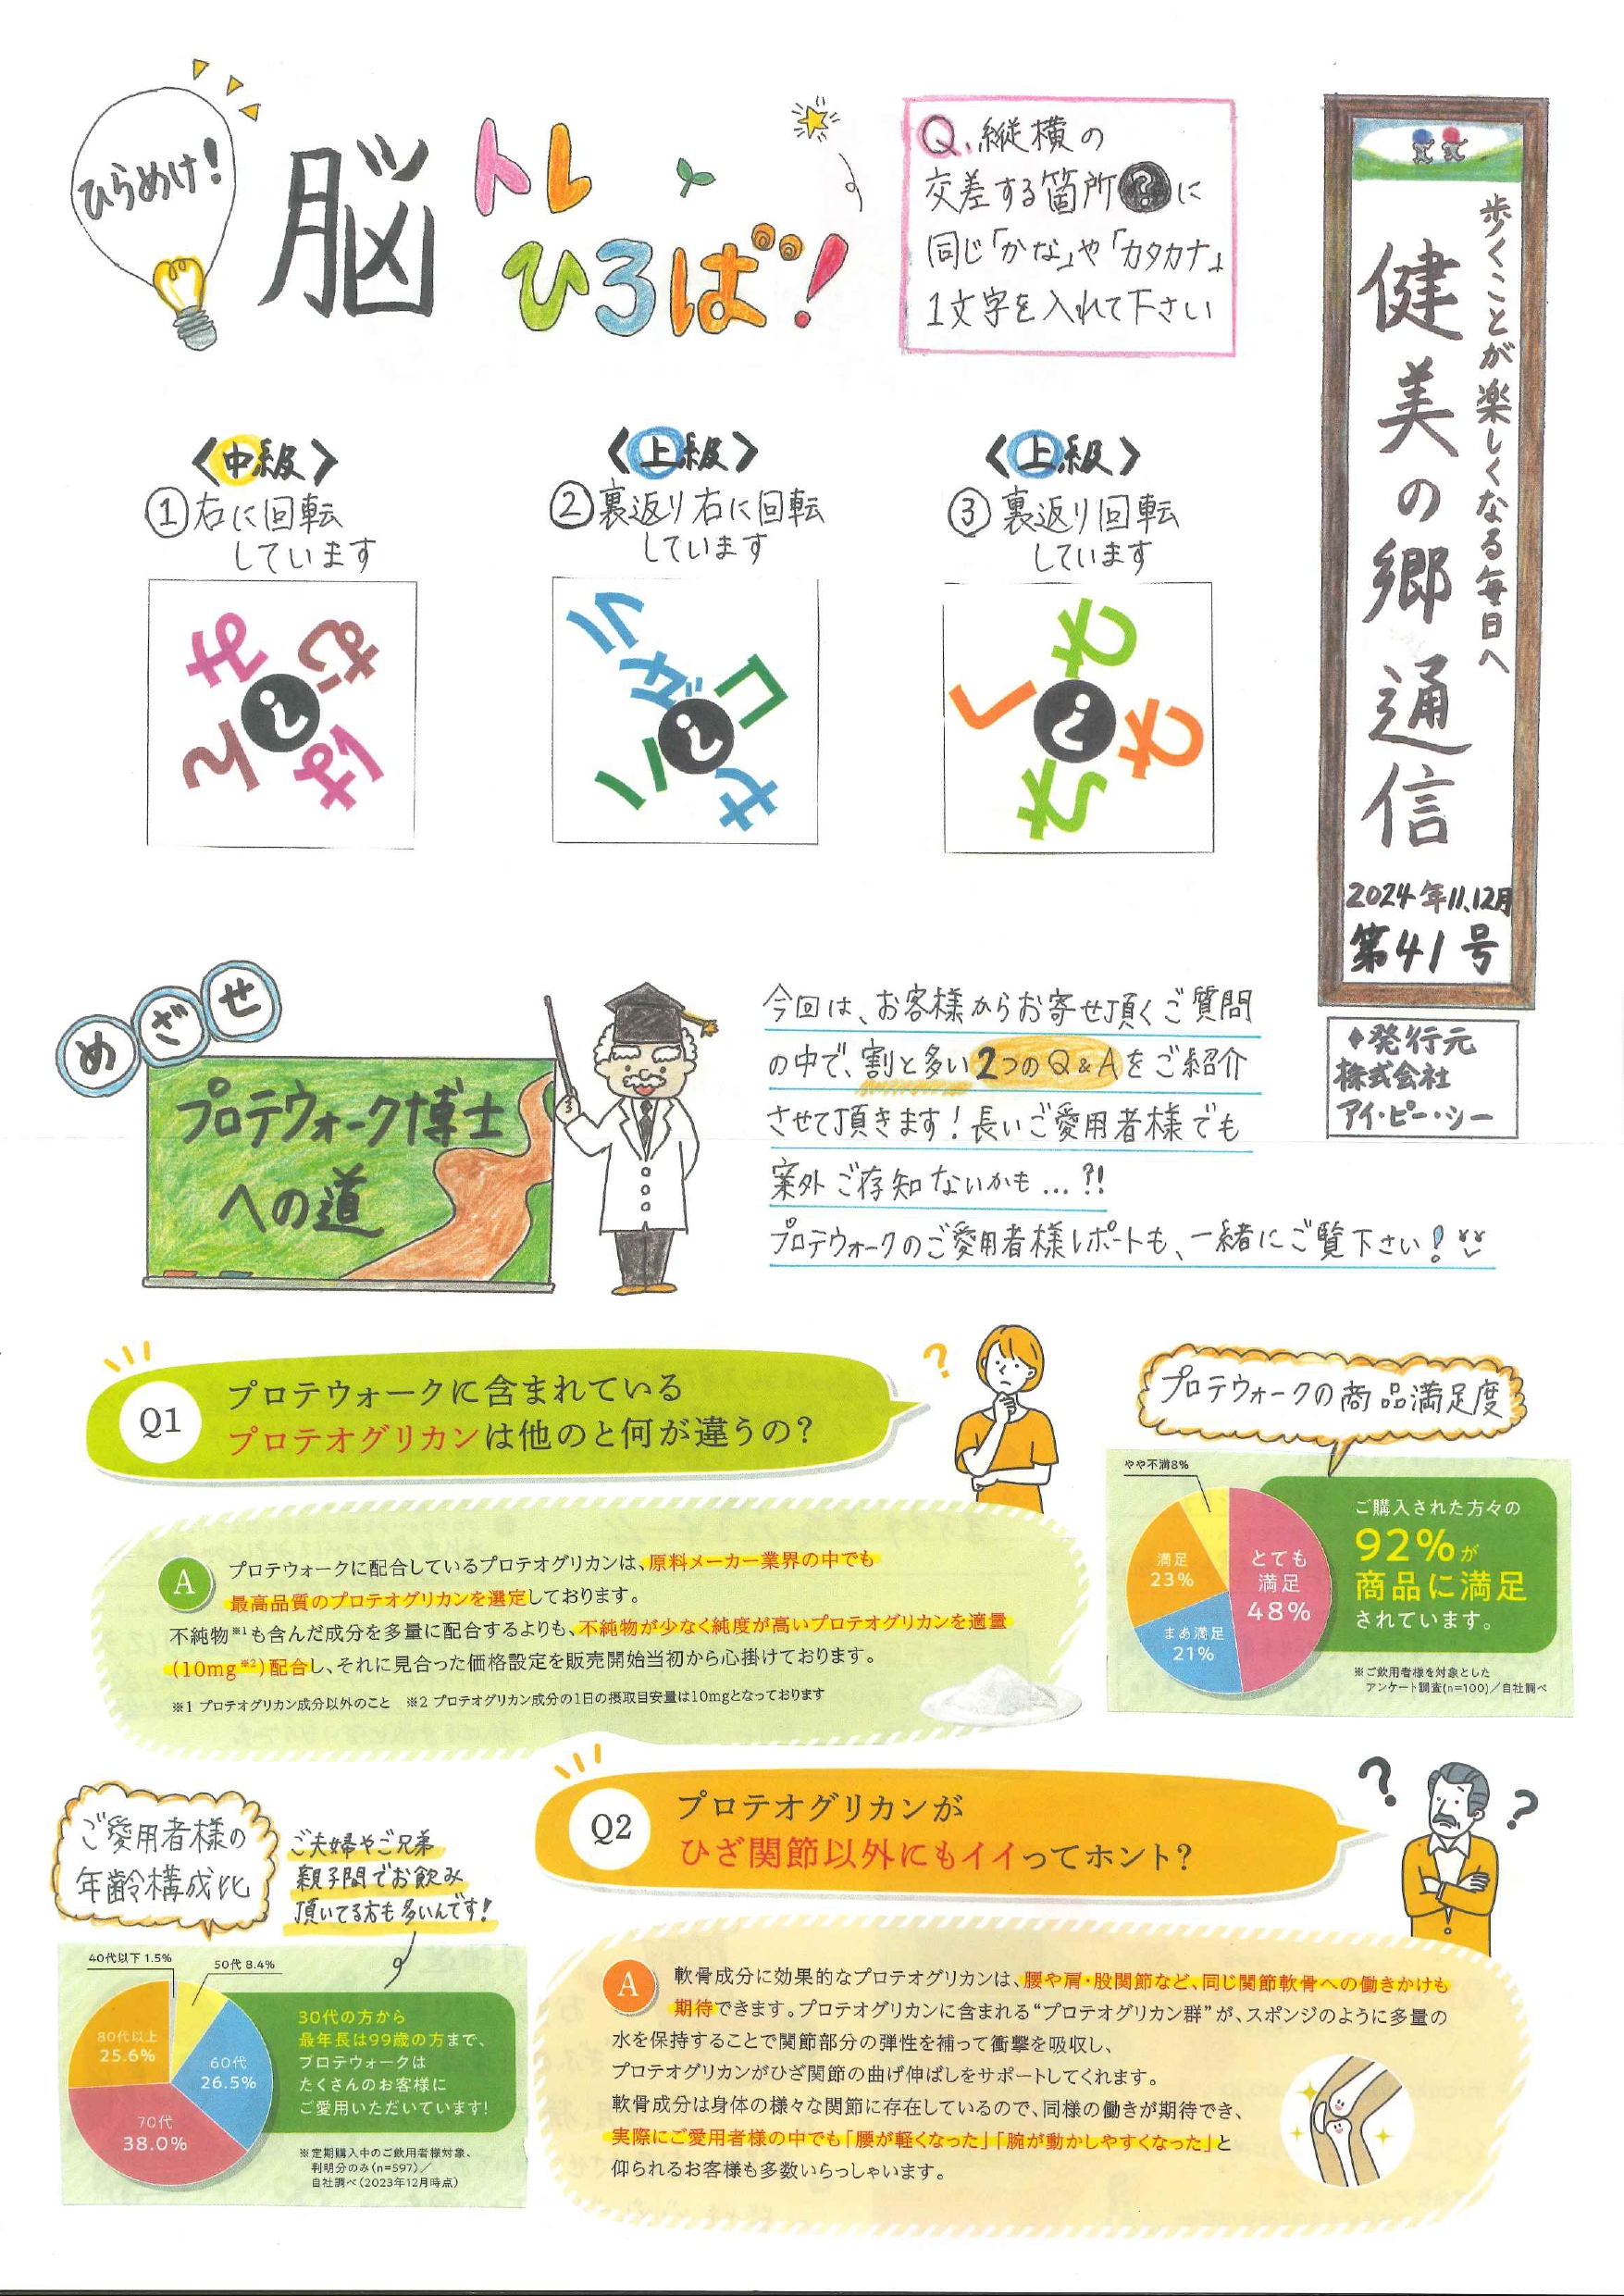 ひらめけ!
脳トレ
ひろば!
Q.縦横の
交差する箇所?に
同じ「かな」や「カタカナ」
1文字を入れて下さい
歩くことが楽しくなる毎日へ
健美の郷通信
2024年11.12月
第41号
♦発行元
株式会社
アイ・ピー・シー
〈中級〉
①右に回転
しています
み
む
?
ん
は
〈上級〉
②裏返り右に回転
しています
?
せ
〈上級〉
③裏返り回転
しています
?
く
めざせ
プロテウォーク博士
への道
今回は、お客様からお寄せ頂くご質問
の中で、割と多い2つのQ&Aをご紹介
させて頂きます!長いご愛用者様でも
案外ご存知ないかも...?!
プロテウォークのご愛用者様レポートも、一緒にご覧下さい!
Q1
プロテウォークに含まれている
プロテオグリカンは他のと何が違うの?
?
A
プロテウォークに配合しているプロテオグリカンは、原料メーカー業界の中でも
最高品質のプロテオグリカンを選定しております。
不純物※1も含んだ成分を多量に配合するよりも、不純物が少なく純度が高いプロテオグリカンを適量
(10mg※2)配合し、それに見合った価格設定を販売開始当初から心掛けております。
※1 プロテオグリカン成分以外のこと ※2 プロテオグリカン成分の1日の摂取目安量は10mgとなっております
プロテウォークの商品満足度
やや不満8%
満足
23%
とても
満足
48%
まあ満足
21%
ご購入された方々の
92%が
商品に満足
されています。
※ご飲用者様を対象とした
アンケート調査(n=100)/自社調べ
Q2
プロテオグリカンが
ひざ関節以外にもイイってホント?
?
?
A
軟骨成分に効果的なプロテオグリカンは、腰や肩・股関節など、同じ関節軟骨への働きかけも
期待できます。プロテオグリカンに含まれる“プロテオグリカン群”が、スポンジのように多量の
水を保持することで関節部分の弾性を補って衝撃を吸収し、
プロテオグリカンがひざ関節の曲げ伸ばしをサポートしてくれます。
軟骨成分は身体の様々な関節に存在しているので、同様の働きが期待でき、
実際にご愛用者様の中でも「腰が軽くなった」「腕が動かしやすくなった」と
仰られるお客様も多数いらっしゃいます。
ご愛用者様の
年齢構成比
ご夫婦やご兄弟
親子間でお飲み
頂いてる方も多いんです!
40代以下 1.5%
50代 8.4%
80代以上
25.6%
60代
26.5%
70代
38.0%
30代の方から
最年長は99歳の方まで、
プロテウォークは
たくさんのお客様に
ご愛用いただいています!
※定期購入中のご飲用者様対象、
判明分のみ(n=597)/
自社調べ(2023年12月時点)